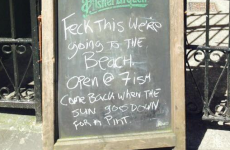 Pilsner Urquell
Feck This We're
going to the
Beach
Open @ 7ish
Come Back when the
sun goes down
for a pint.